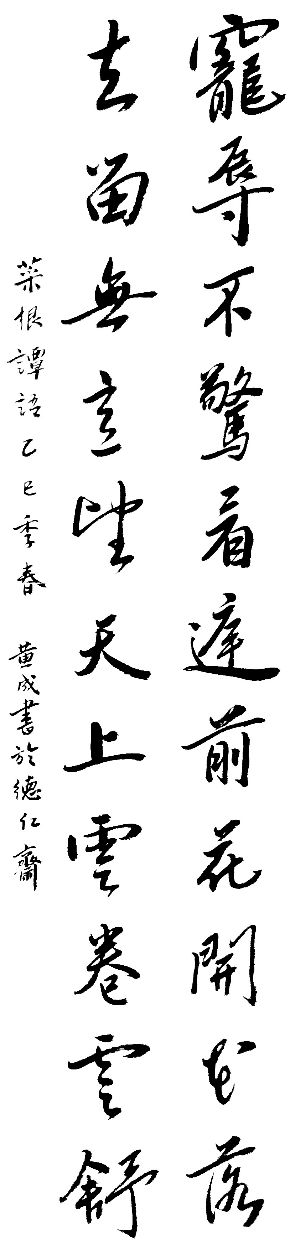 寵辱不驚看庭前花開花落
去留無意望天上雲卷雲舒
菜根譚語乙巳季春 黄成書於德仁齋